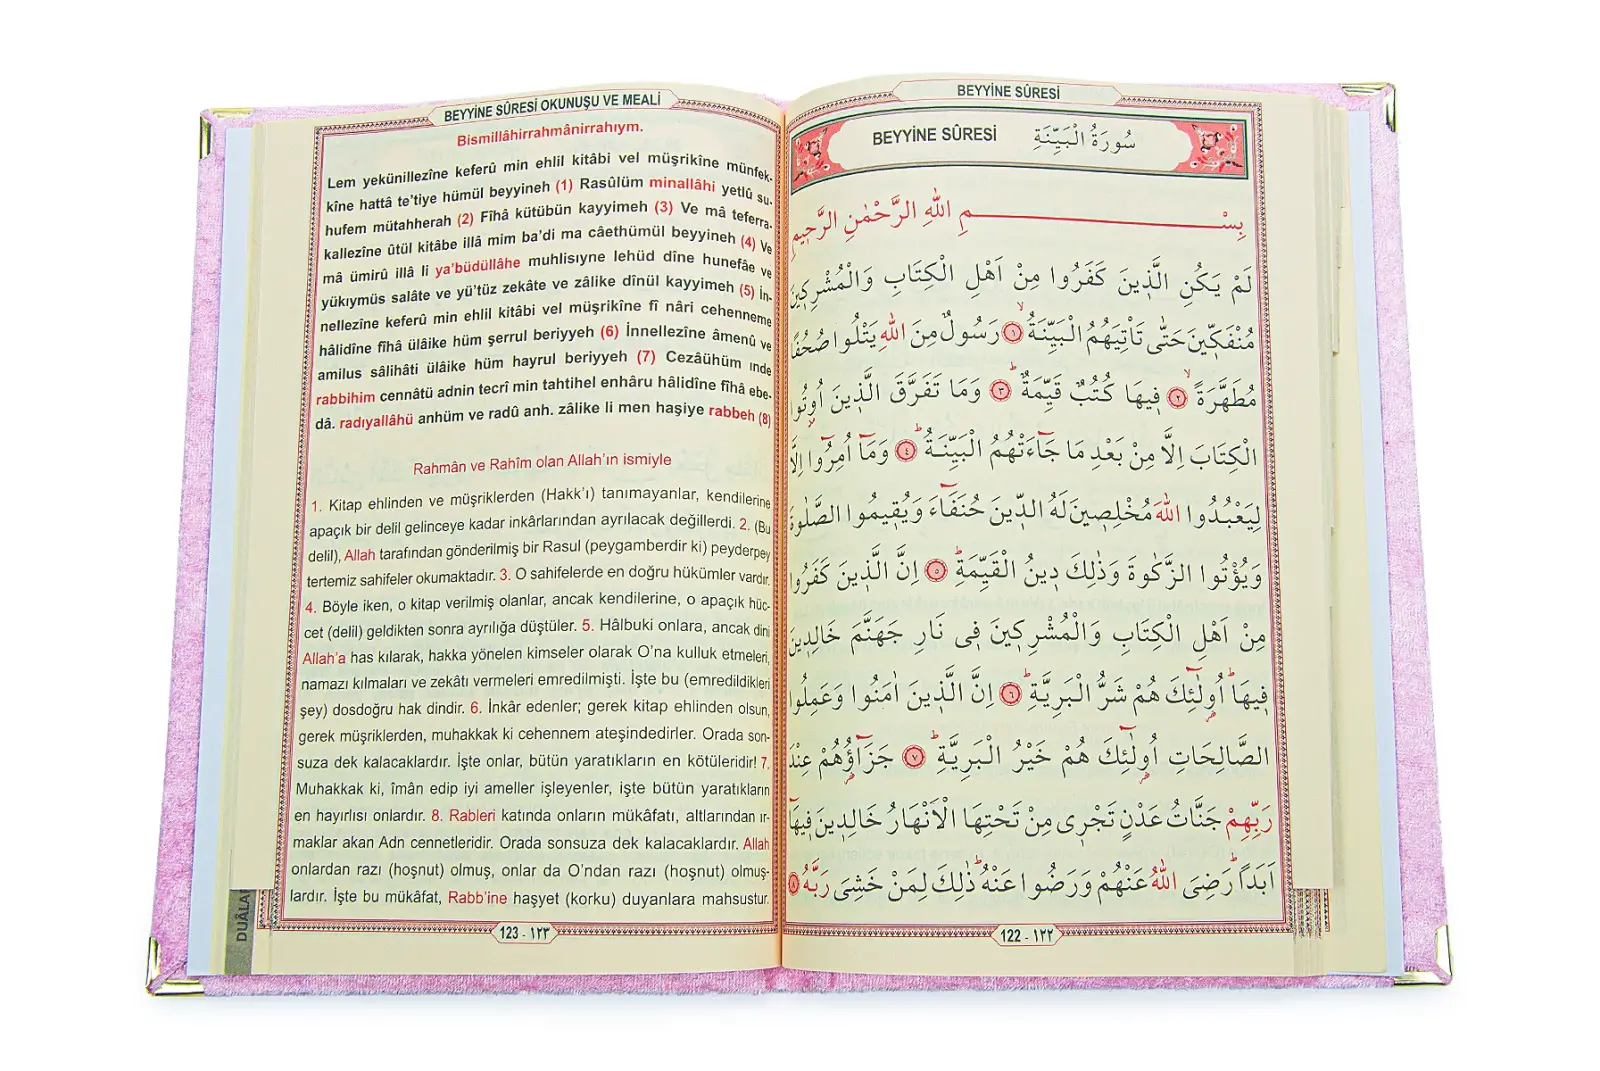 BEYYİNE SÛRESİ
BEYYİNE SÛRESİ سُورَةُ الْبَيِّنَةِ
بِسْمِ اللّٰهِ الرَّحْمٰنِ الرَّحٖيمِ
لَمْ يَكُنِ الَّذٖينَ كَفَرُوا مِنْ اَهْلِ الْكِتَابِ وَالْمُشْرِكٖينَ
مُنْفَكّٖينَ حَتّٰى تَاْتِيَهُمُ الْبَيِّنَةُۙ ﴿١﴾ رَسُولٌ مِنَ اللّٰهِ يَتْلُوا صُحُفًا
مُطَهَّرَةًۙ ﴿٢﴾ فٖيهَا كُتُبٌ قَيِّمَةٌؕ ﴿٣﴾ وَمَا تَفَرَّقَ الَّذٖينَ اُوتُوا
الْكِتَابَ اِلَّا مِنْ بَعْدِ مَا جَٓاءَتْهُمُ الْبَيِّنَةُؕ ﴿٤﴾ وَمَٓا اُمِرُٓوا اِلَّا
لِيَعْبُدُوا اللّٰهَ مُخْلِصٖينَ لَهُ الدّٖينَ حُنَفَٓاءَ وَيُقٖيمُوا الصَّلٰوةَ
وَيُؤْتُوا الزَّكٰوةَ وَذٰلِكَ دٖينُ الْقَيِّمَةِؕ ﴿٥﴾ اِنَّ الَّذٖينَ كَفَرُوا
مِنْ اَهْلِ الْكِتَابِ وَالْمُشْرِكٖينَ فٖى نَارِ جَهَنَّمَ خَالِدٖينَ
فٖيهَاؕ اُولٰٓئِكَ هُمْ شَرُّ الْبَرِيَّةِؕ ﴿٦﴾ اِنَّ الَّذٖينَ اٰمَنُوا وَعَمِلُوا
الصَّالِحَاتِ اُولٰٓئِكَ هُمْ خَيْرُ الْبَرِيَّةِؕ ﴿٧﴾ جَزَٓاؤُهُمْ عِنْدَ
رَبِّهِمْ جَنَّاتُ عَدْنٍ تَجْرٖى مِنْ تَحْتِهَا الْاَنْهَارُ خَالِدٖينَ فٖيهَٓا
اَبَدًاؕ رَضِىَ اللّٰهُ عَنْهُمْ وَرَضُوا عَنْهُؕ ذٰلِكَ لِمَنْ خَشِىَ رَبَّهُ ﴿٨﴾
122 - ١٢٢
BEYYİNE SÛRESİ OKUNUŞU VE MEALİ
Bismillâhirrahmânirrahıym.
Lem yekünillezîne keferû min ehlil kitâbi vel müşrikîne münfek-
kîne hattâ te'tiye hümül beyyineh (1) Rasûlüm minallâhi yetlû su-
hufem mütahherah (2) Fîhâ kütübün kayyimeh (3) Ve mâ teferra-
kallezîne ûtül kitâbe illâ mim ba'di ma câethümül beyyineh (4) Ve
mâ ümirû illâ li ya'büdüllâhe muhlisıyne lehüd dîne hunefâe ve
yükıymüs salâte ve yü'tüz zekâte ve zâlike dînül kayyimeh (5) İn-
nellezîne keferû min ehlil kitâbi vel müşrikîne fî nâri cehenneme
hâlidîne fîhâ ülâike hüm şerrul beriyyeh (6) İnnellezîne âmenû ve
amilus sâlihâti ülâike hüm hayrul beriyyeh (7) Cezâühüm ınde
rabbihim cennâtü adnin tecrî min tahtihel enhâru hâlidîne fîhâ ebe-
dâ. radıyallâhü anhüm ve radû anh. zâlike li men haşiye rabbeh (8)
Rahmân ve Rahîm olan Allah'ın ismiyle
1. Kitap ehlinden ve müşriklerden (Hakk'ı) tanımayanlar, kendilerine
apaçık bir delil gelinceye kadar inkârlarından ayrılacak değillerdi. 2. (Bu
delil), Allah tarafından gönderilmiş bir Rasul (peygamberdir ki) peyderpey
tertemiz sahifeler okumaktadır. 3. O sahifelerde en doğru hükümler vardır.
4. Böyle iken, o kitap verilmiş olanlar, ancak kendilerine, o apaçık hüc-
cet (delil) geldikten sonra ayrılığa düştüler. 5. Hâlbuki onlara, ancak dini
Allah'a has kılarak, hakka yönelen kimseler olarak O'na kulluk etmeleri,
namazı kılmaları ve zekâtı vermeleri emredilmişti. İşte bu (emredildikleri
şey) dosdoğru hak dindir. 6. İnkâr edenler; gerek kitap ehlinden olsun,
gerek müşriklerden, muhakkak ki cehennem ateşindedirler. Orada son-
suza dek kalacaklardır. İşte onlar, bütün yaratıkların en kötüleridir! 7.
Muhakkak ki, îmân edip iyi ameller işleyenler, işte bütün yaratıkların
en hayırlısı onlardır. 8. Rableri katında onların mükâfatı, altlarından ır-
maklar akan Adn cennetleridir. Orada sonsuza dek kalacaklardır. Allah
onlardan razı (hoşnut) olmuş, onlar da O'ndan razı (hoşnut) olmuş-
lardır. İşte bu mükâfat, Rabb'ine haşyet (korku) duyanlara mahsustur.
123 - ١٢٣